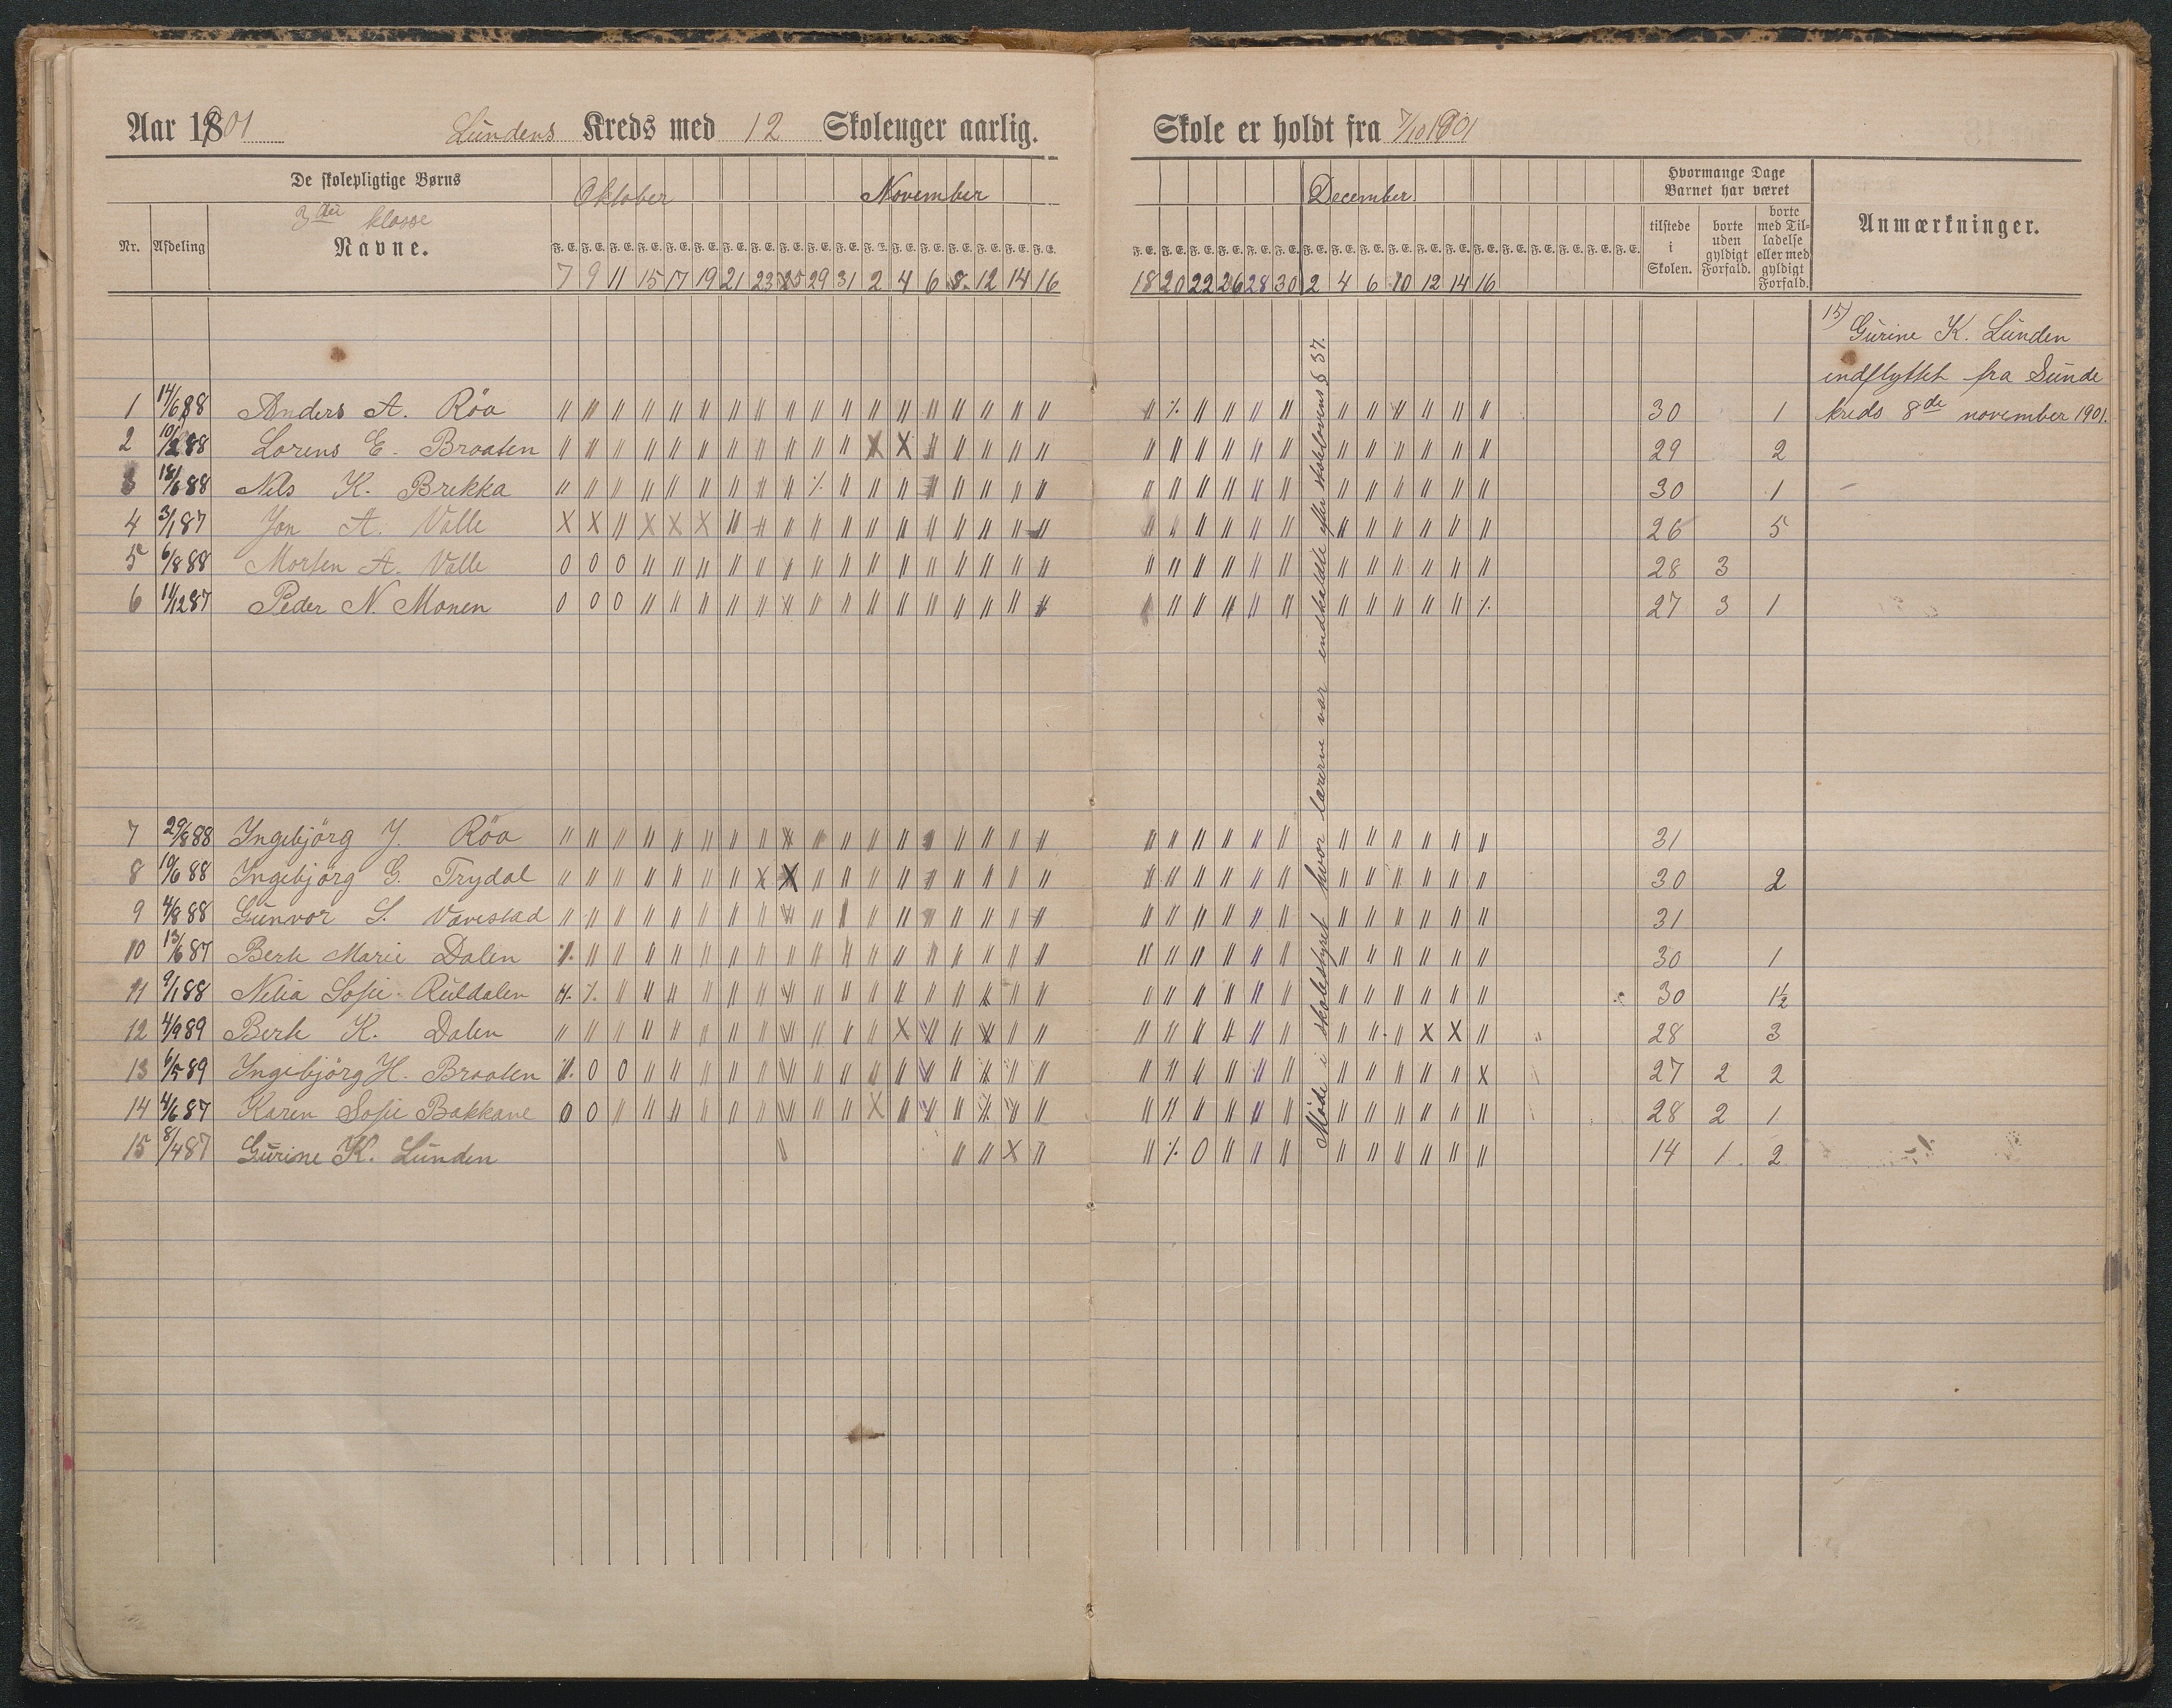 Aar 1901 Lundens Kreds med 12 Skoleuger aarlig.
De skolepligtige Børns Oktober November
3die klasse
Nr. Afdeling Navne. F. E. F. E. F. E. F. E. F. E. F. E. F. E. F. E. F. E. F. E. F. E. F. E. F. E. F. E. F. E. F. E. F. E. F. E.
7 9 11 15 17 19 21 23 25 29 31 2 4 6 8 12 14 16
1 14/6 88 Anders A. Röa
2 88 Lorens E. Braaten
3 88 Nils K. Brekka
4 3/1 87 Jon A. Valle
5 6/8 88 Morten A. Valle
6 11/12 87 Peder N. Monen
7 29/8 88 Ingebjörg J. Röa
8 19/6 88 Ingebjörg G. Trydal
9 4/8 88 Gunvor S. Vavestad
10 13/6 87 Berte Marie Dalen
11 9/1 88 Nelia Sofie Ruldalen
12 4/9 89 Berte K. Dalen
13 6/5 89 Ingebjörg H. Braaten
14 4/6 87 Karen Sofie Bakkane
15 8/4 87 Gurine K. Lunden
Skole er holdt fra 7/10 1901
December Hvormange Dage Barnet har været
F. E. F. E. F. E. F. E. F. E. F. E. F. E. F. E. F. E. F. E. F. E. F. E. F. E. F. E. F. E. F. E. F. E. F. E.
tilstede i Skolen. borte uden gyldigt Forfald. borte med Tilladelse eller med gyldigt Forfald. Anmærkninger.
18 20 22 26 28 30 2 4 6 10 12 14 16
Møde i skolestyret hvor lærerne var indkaldte efter skolelovens § 37.
15) Gurine K. Lunden
indflyttet fra Sunde
kreds 8de november 1901.
30 1
29 2
30 1
26 5
28 3
27 3 1
31
30 2
31
30 1
30 1½
28 3
27 2 2
28 2 1
14 1 2